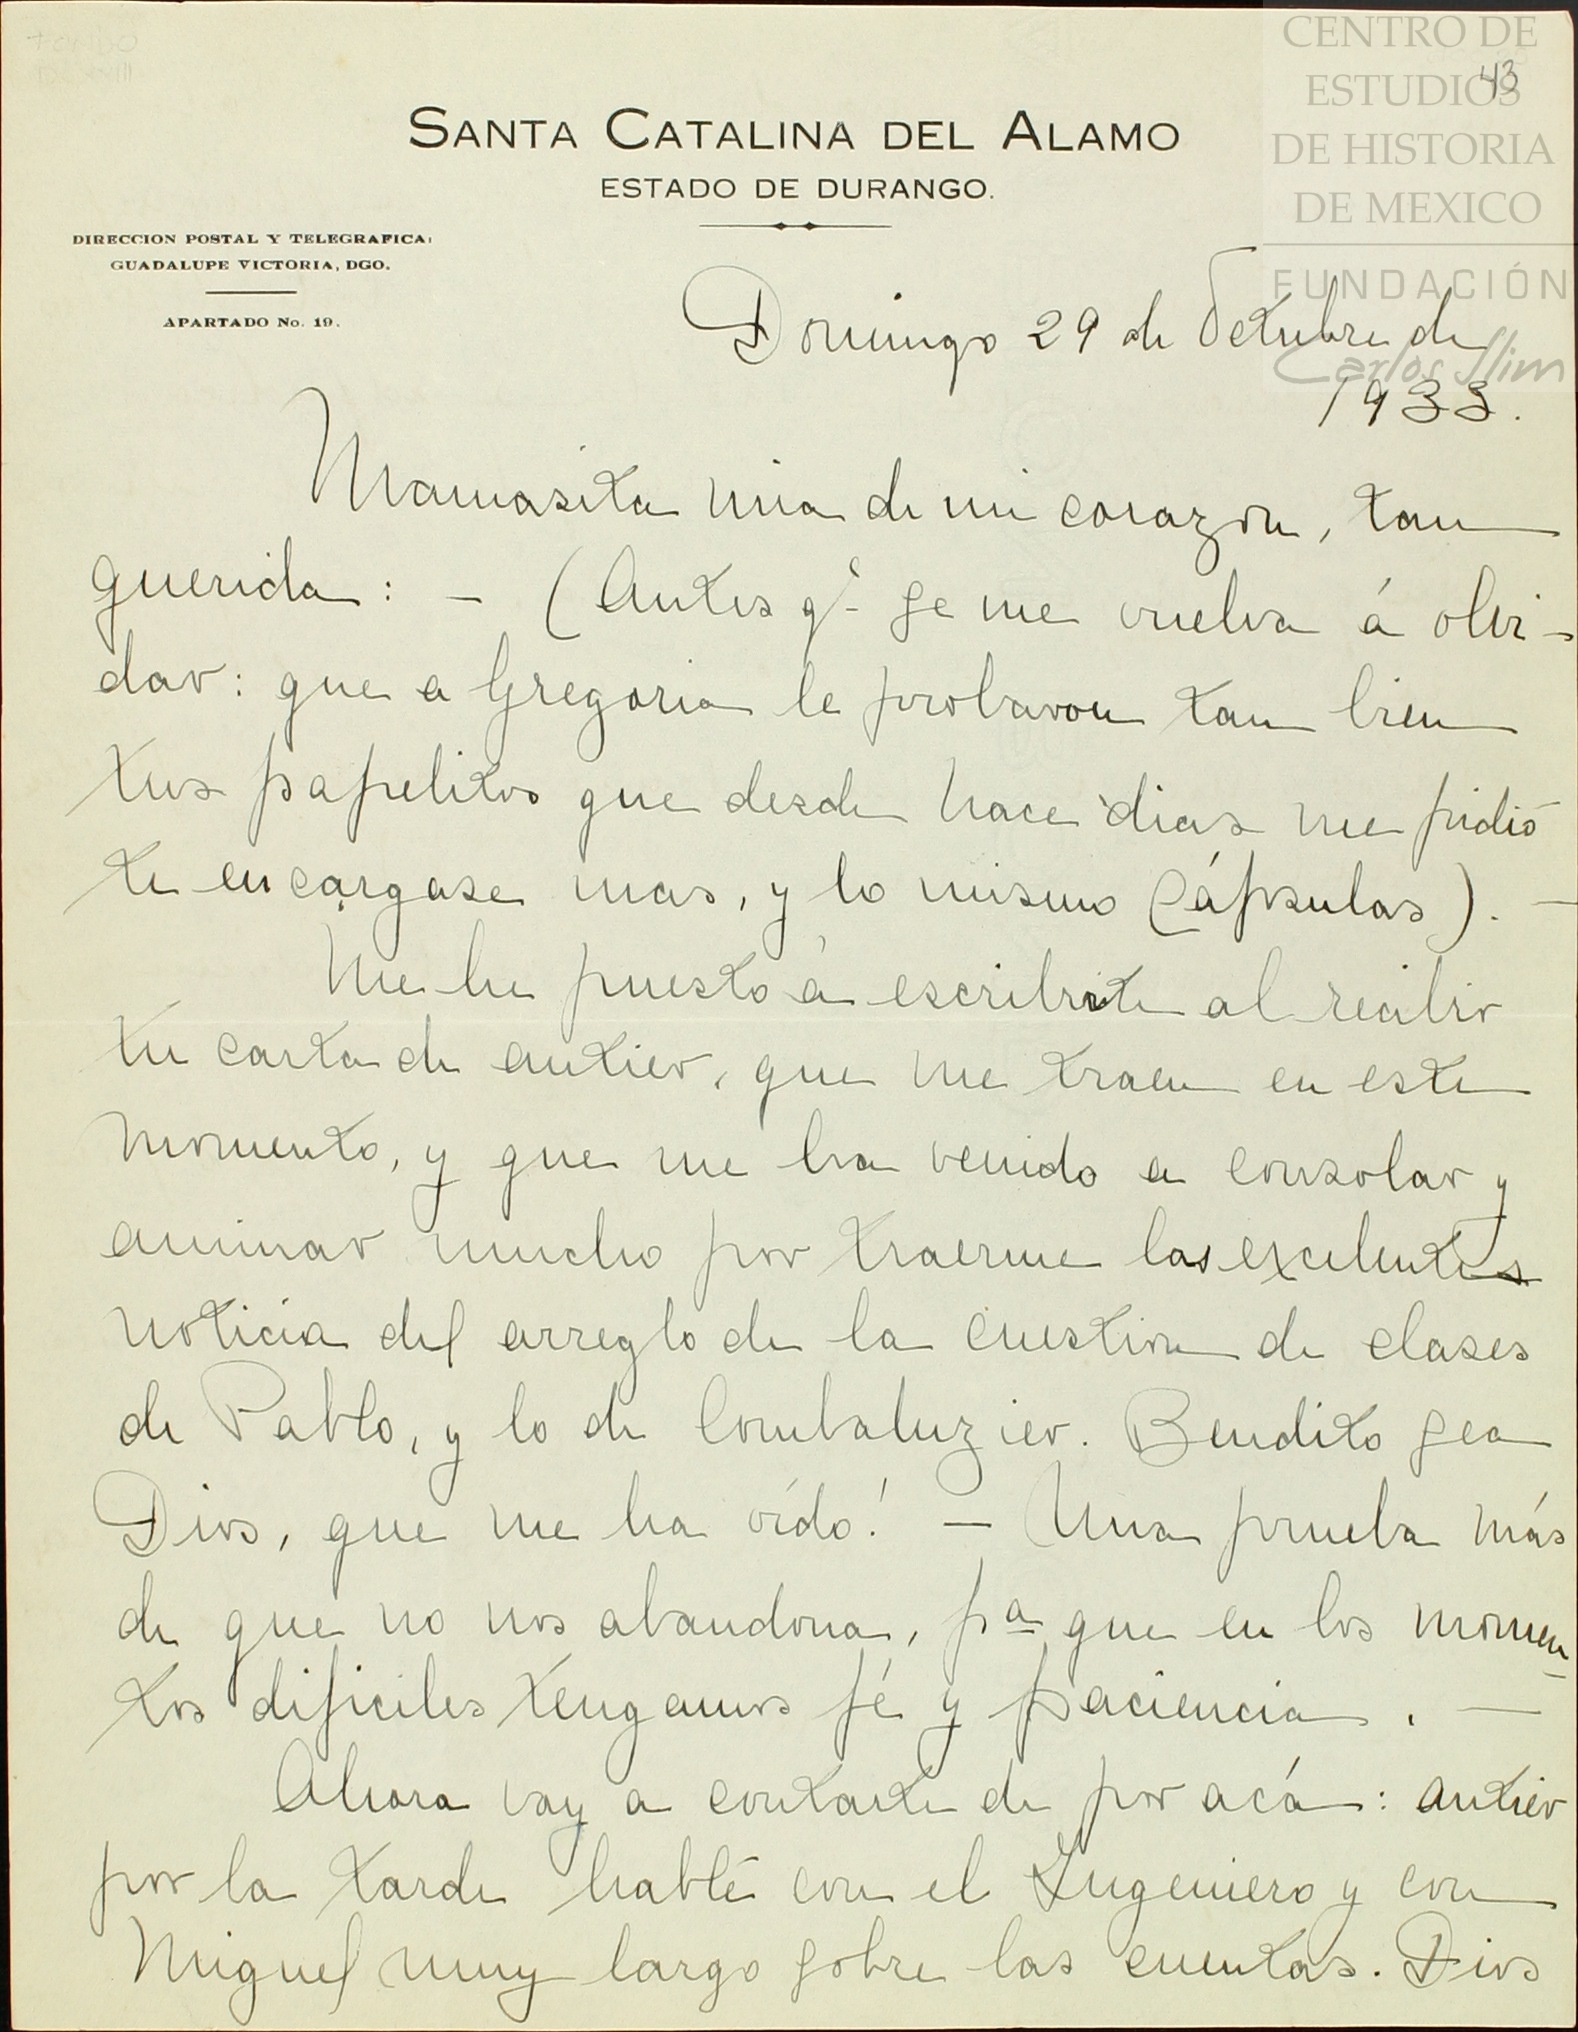 FONDO
DCXXIII
CENTRO DE
ESTUDIOS
DE HISTORIA
DE MEXICO
FUNDACIÓN
Carlos Slim
43
SANTA CATALINA DEL ALAMO
ESTADO DE DURANGO.
DIRECCION POSTAL Y TELEGRAFICA:
GUADALUPE VICTORIA, DGO.
APARTADO No. 19.
Domingo 29 de Octubre de
1933.
Mamasita mia de mi corazon, tan
querida: - (Antes q' se me vuelva á olvi-
dar: que a Gregoria le probaron tan bien
tus papelitos que desde hace dias me pidió
te encargase mas, y lo mismo Cápsulas). -
Me he puesto á escribirte al recibir
tu carta de antier, que me traen en este
momento, y que me ha venido a consolar y
animar mucho por traerme las excelentes
noticia del arreglo de la cuestion de clases
de Pablo, y lo de Combaluzier. Bendito sea
Dios, que me ha oído! - Una prueba más
de que no nos abandona, pa que en los momen-
tos dificiles tengamos fé y paciencia. -
Ahora voy a contarte de por acá: antier
por la tarde hablé con el Ingeniero y con
Miguel muy largo sobre las cuentas. Dios